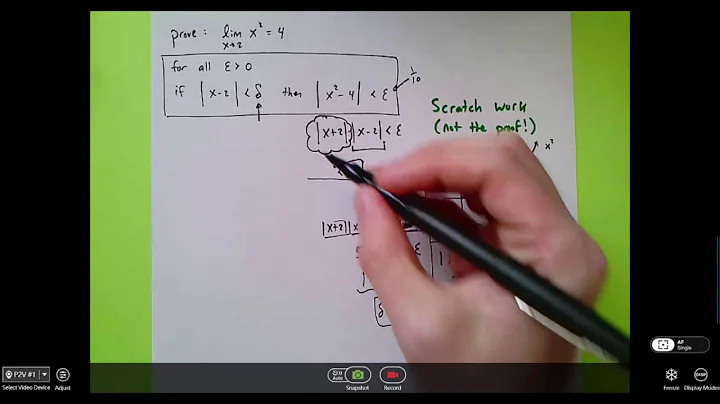 prove : lim x² = 4
x→2
for all ε > 0
if |x-2| < δ then |x²-4| < ε
1/10
|x+2| |x-2| < ε
Scratch work
(not the proof!)
x²
|x+2||x
ε
δ
P2V #1
Select Video Device
Adjust
Auto
Snapshot
Record
AF
Single
Freeze
DISP
Display Modes